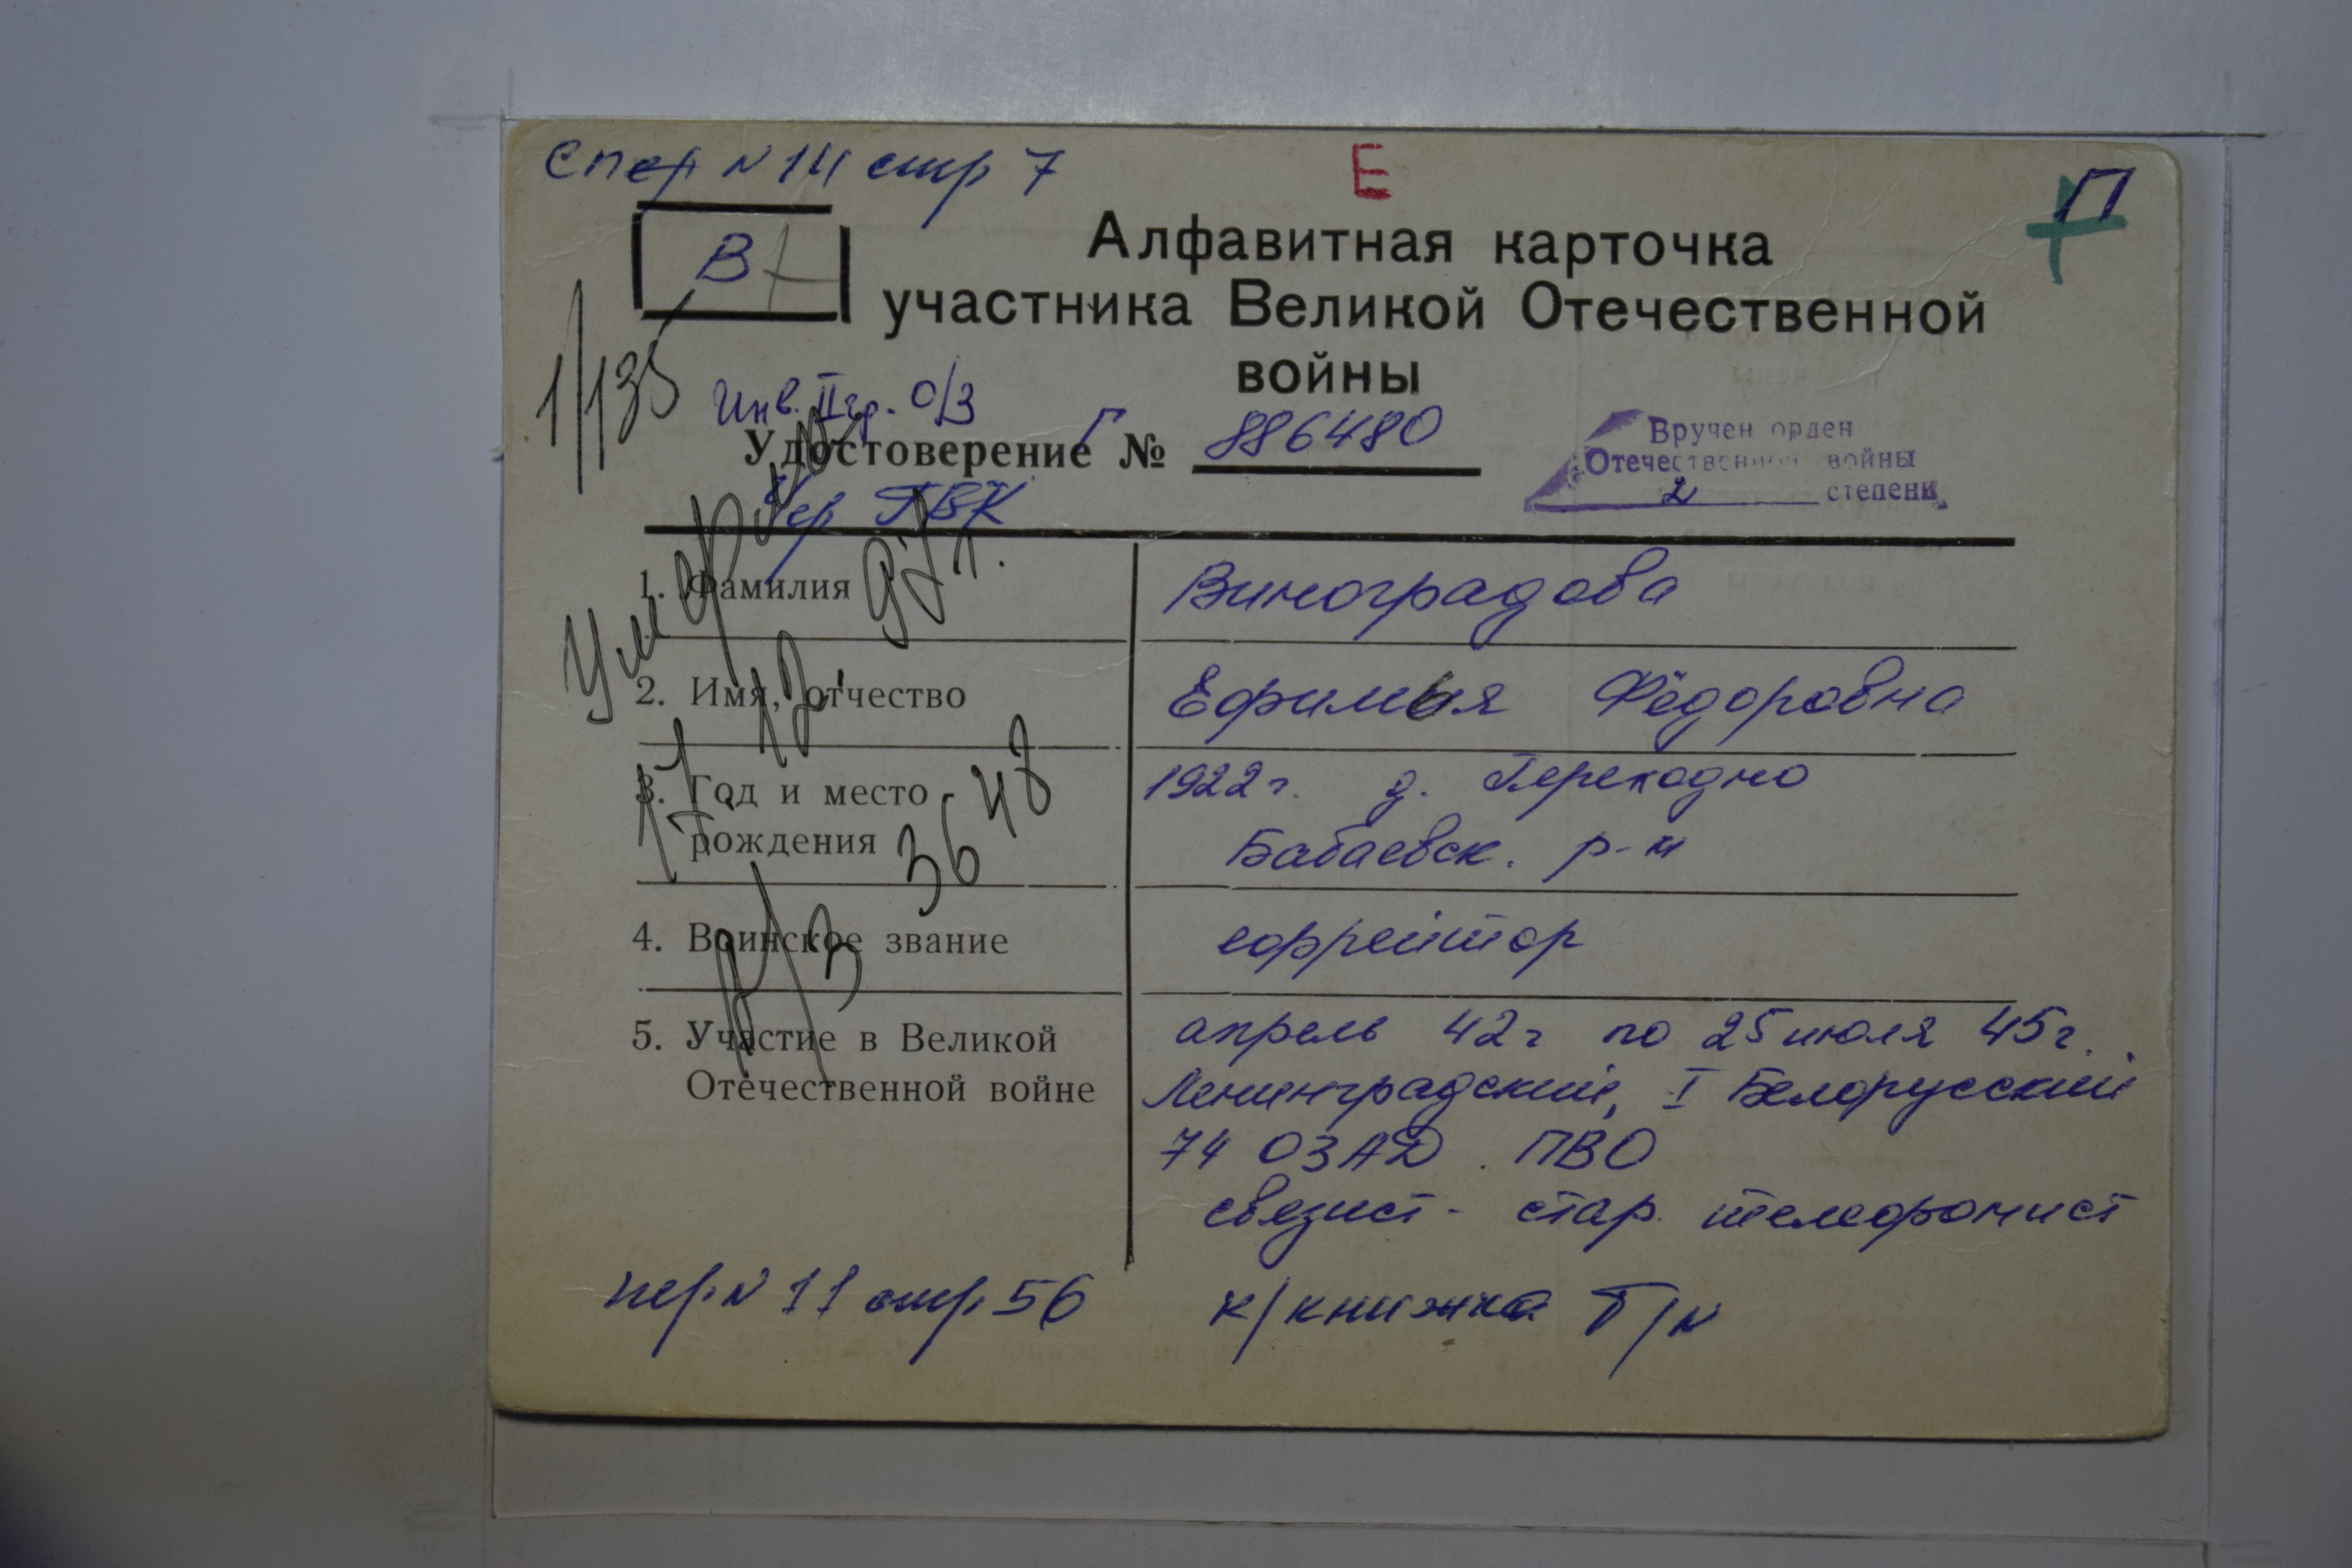 спер N 14 стр 7
Е
П
В
Алфавитная карточка
участника Великой Отечественной
войны
1/135
Инв. II гр. О/З
Удостоверение Г № 886480
Вручен орден
Отечественной войны
2 степени
Чер ГВК
Умерла
17 12 97 г.
1. Фамилия Виноградова
2. Имя, отчество Ефимья Фёдоровна
3. Год и место рождения
1922 г. д. Переходно
Бабаевск. р-н
3648
4. Воинское звание ефрейтор
а/з
5. Участие в Великой
Отечественной войне
апрель 42 г по 25 июля 45 г.
Ленинградский, I Белорусский
74 ОЗАД. ПВО
связист - стар. телефонист
пер. N 11 стр. 56
к/книжка Т/N